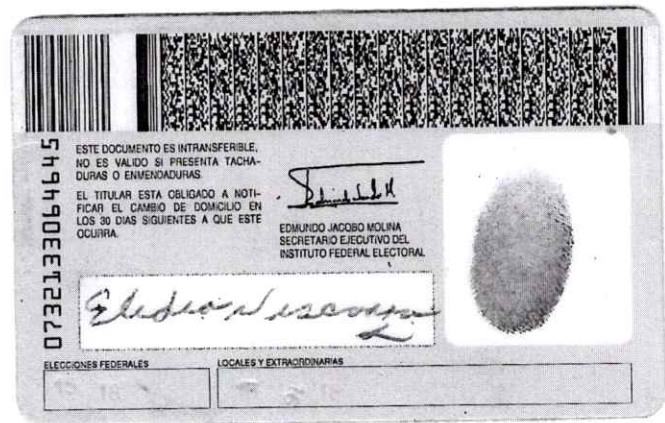 0732133064645
ESTE DOCUMENTO ES INTRANSFERIBLE,
NO ES VALIDO SI PRESENTA TACHA-
DURAS O ENMENDADURAS.
EL TITULAR ESTA OBLIGADO A NOTI-
FICAR EL CAMBIO DE DOMICILIO EN
LOS 30 DIAS SIGUIENTES A QUE ESTE
OCURRA.
EDMUNDO JACOBO MOLINA
SECRETARIO EJECUTIVO DEL
INSTITUTO FEDERAL ELECTORAL
ELECCIONES FEDERALES
LOCALES Y EXTRAORDINARIAS